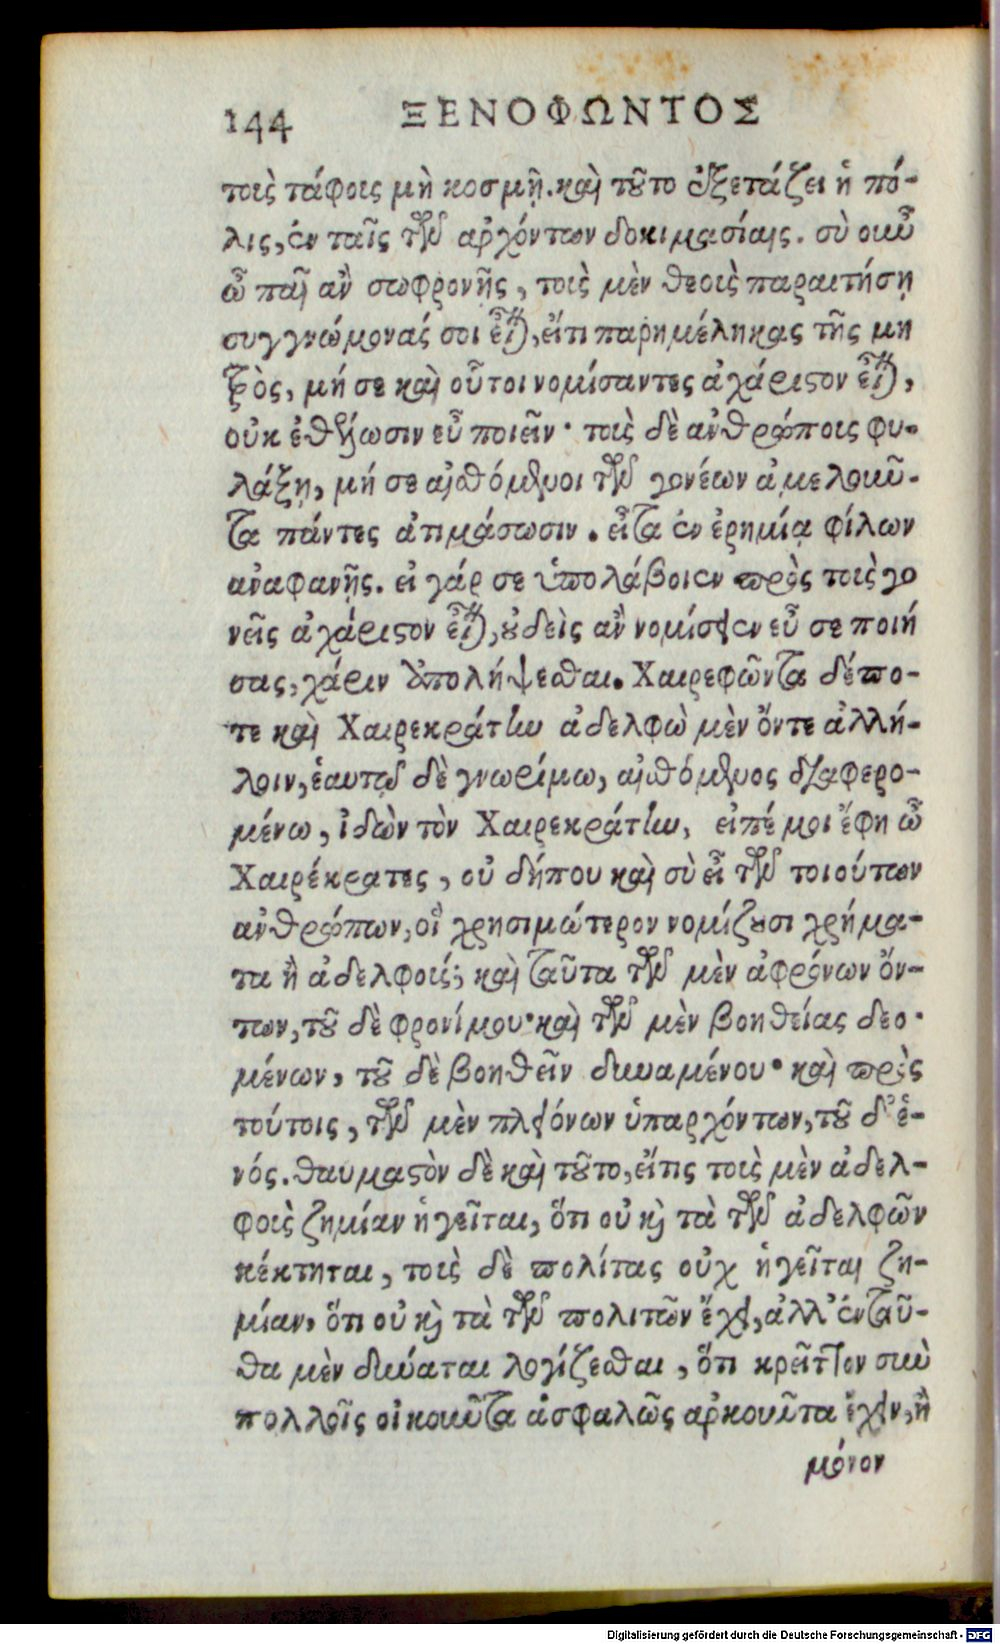 144 ΞΕΝΟΦΩΝΤΟΣ
τοὺς τάφους μὴ κοσμῇ. καὶ τοῦτο ἐξετάζει ἡ πό-
λις, ἐν ταῖς τῶν ἀρχόντων δοκιμασίαις. σὺ οὖν
ὦ παῖ ἂν σωφρονῇς, τοὺς μὲν θεοὺς παραιτήσῃ
συγγνώμονάς σοι εἶναι, εἴτι παρημέληκας τῆς μη
τρὸς, μή σε καὶ οὗτοι νομίσαντες ἀχάριστον εἶναι,
οὐκ ἐθέλωσιν εὖ ποιεῖν· τοὺς δὲ ἀνθρώπους φυ-
λάξῃ, μή σε αἰσθόμενοι τῶν γονέων ἀμελοῦν-
τα πάντες ἀτιμάσωσιν. εἶτα ἐν ἐρημίᾳ φίλων
ἀναφανῇς. εἰ γάρ σε ὑπολάβοιεν πρὸς τοὺς γο
νεῖς ἀχάριστον εἶναι, οὐδεὶς ἂν νομίσειεν εὖ σε ποιή
σας, χάριν ἀπολήψεσθαι. Χαιρεφῶντα δέ πο-
τε καὶ Χαιρεκράτην ἀδελφὼ μὲν ὄντε ἀλλή-
λοιν, ἑαυτῷ δὲ γνωρίμω, αἰσθόμενος διαφερο-
μένω, ἰδὼν τὸν Χαιρεκράτην, εἰπέ μοι ἔφη ὦ
Χαιρέκρατες, οὐ δήπου καὶ σὺ εἶ τῶν τοιούτων
ἀνθρώπων, οἳ χρησιμώτερον νομίζουσι χρήμα-
τα ἢ ἀδελφούς; καὶ ταῦτα τῶν μὲν ἀφρόνων ὄν-
των, τοῦ δὲ φρονίμου· καὶ τῶν μὲν βοηθείας δεο-
μένων, τοῦ δὲ βοηθεῖν δυναμένου· καὶ πρὸς
τούτοις, τῶν μὲν πλειόνων ὑπαρχόντων, τοῦ δ' ἑ-
νός. θαυμαστὸν δὲ καὶ τοῦτο, εἴτις τοὺς μὲν ἀδελ-
φοὺς ζημίαν ἡγεῖται, ὅτι οὐ καὶ τὰ τῶν ἀδελφῶν
κέκτηται, τοὺς δὲ πολίτας οὐχ ἡγεῖται ζη-
μίαν, ὅτι οὐ καὶ τὰ τῶν πολιτῶν ἔχει, ἀλλ' ἐνταῦ-
θα μὲν δύναται λογίζεσθαι, ὅτι κρεῖττον σὺν
πολλοῖς οἰκοῦντα ἀσφαλῶς ἀρκοῦντα ἔχειν, ἢ
μόνον
Digitalisierung gefördert durch die Deutsche Forschungsgemeinschaft - DFG